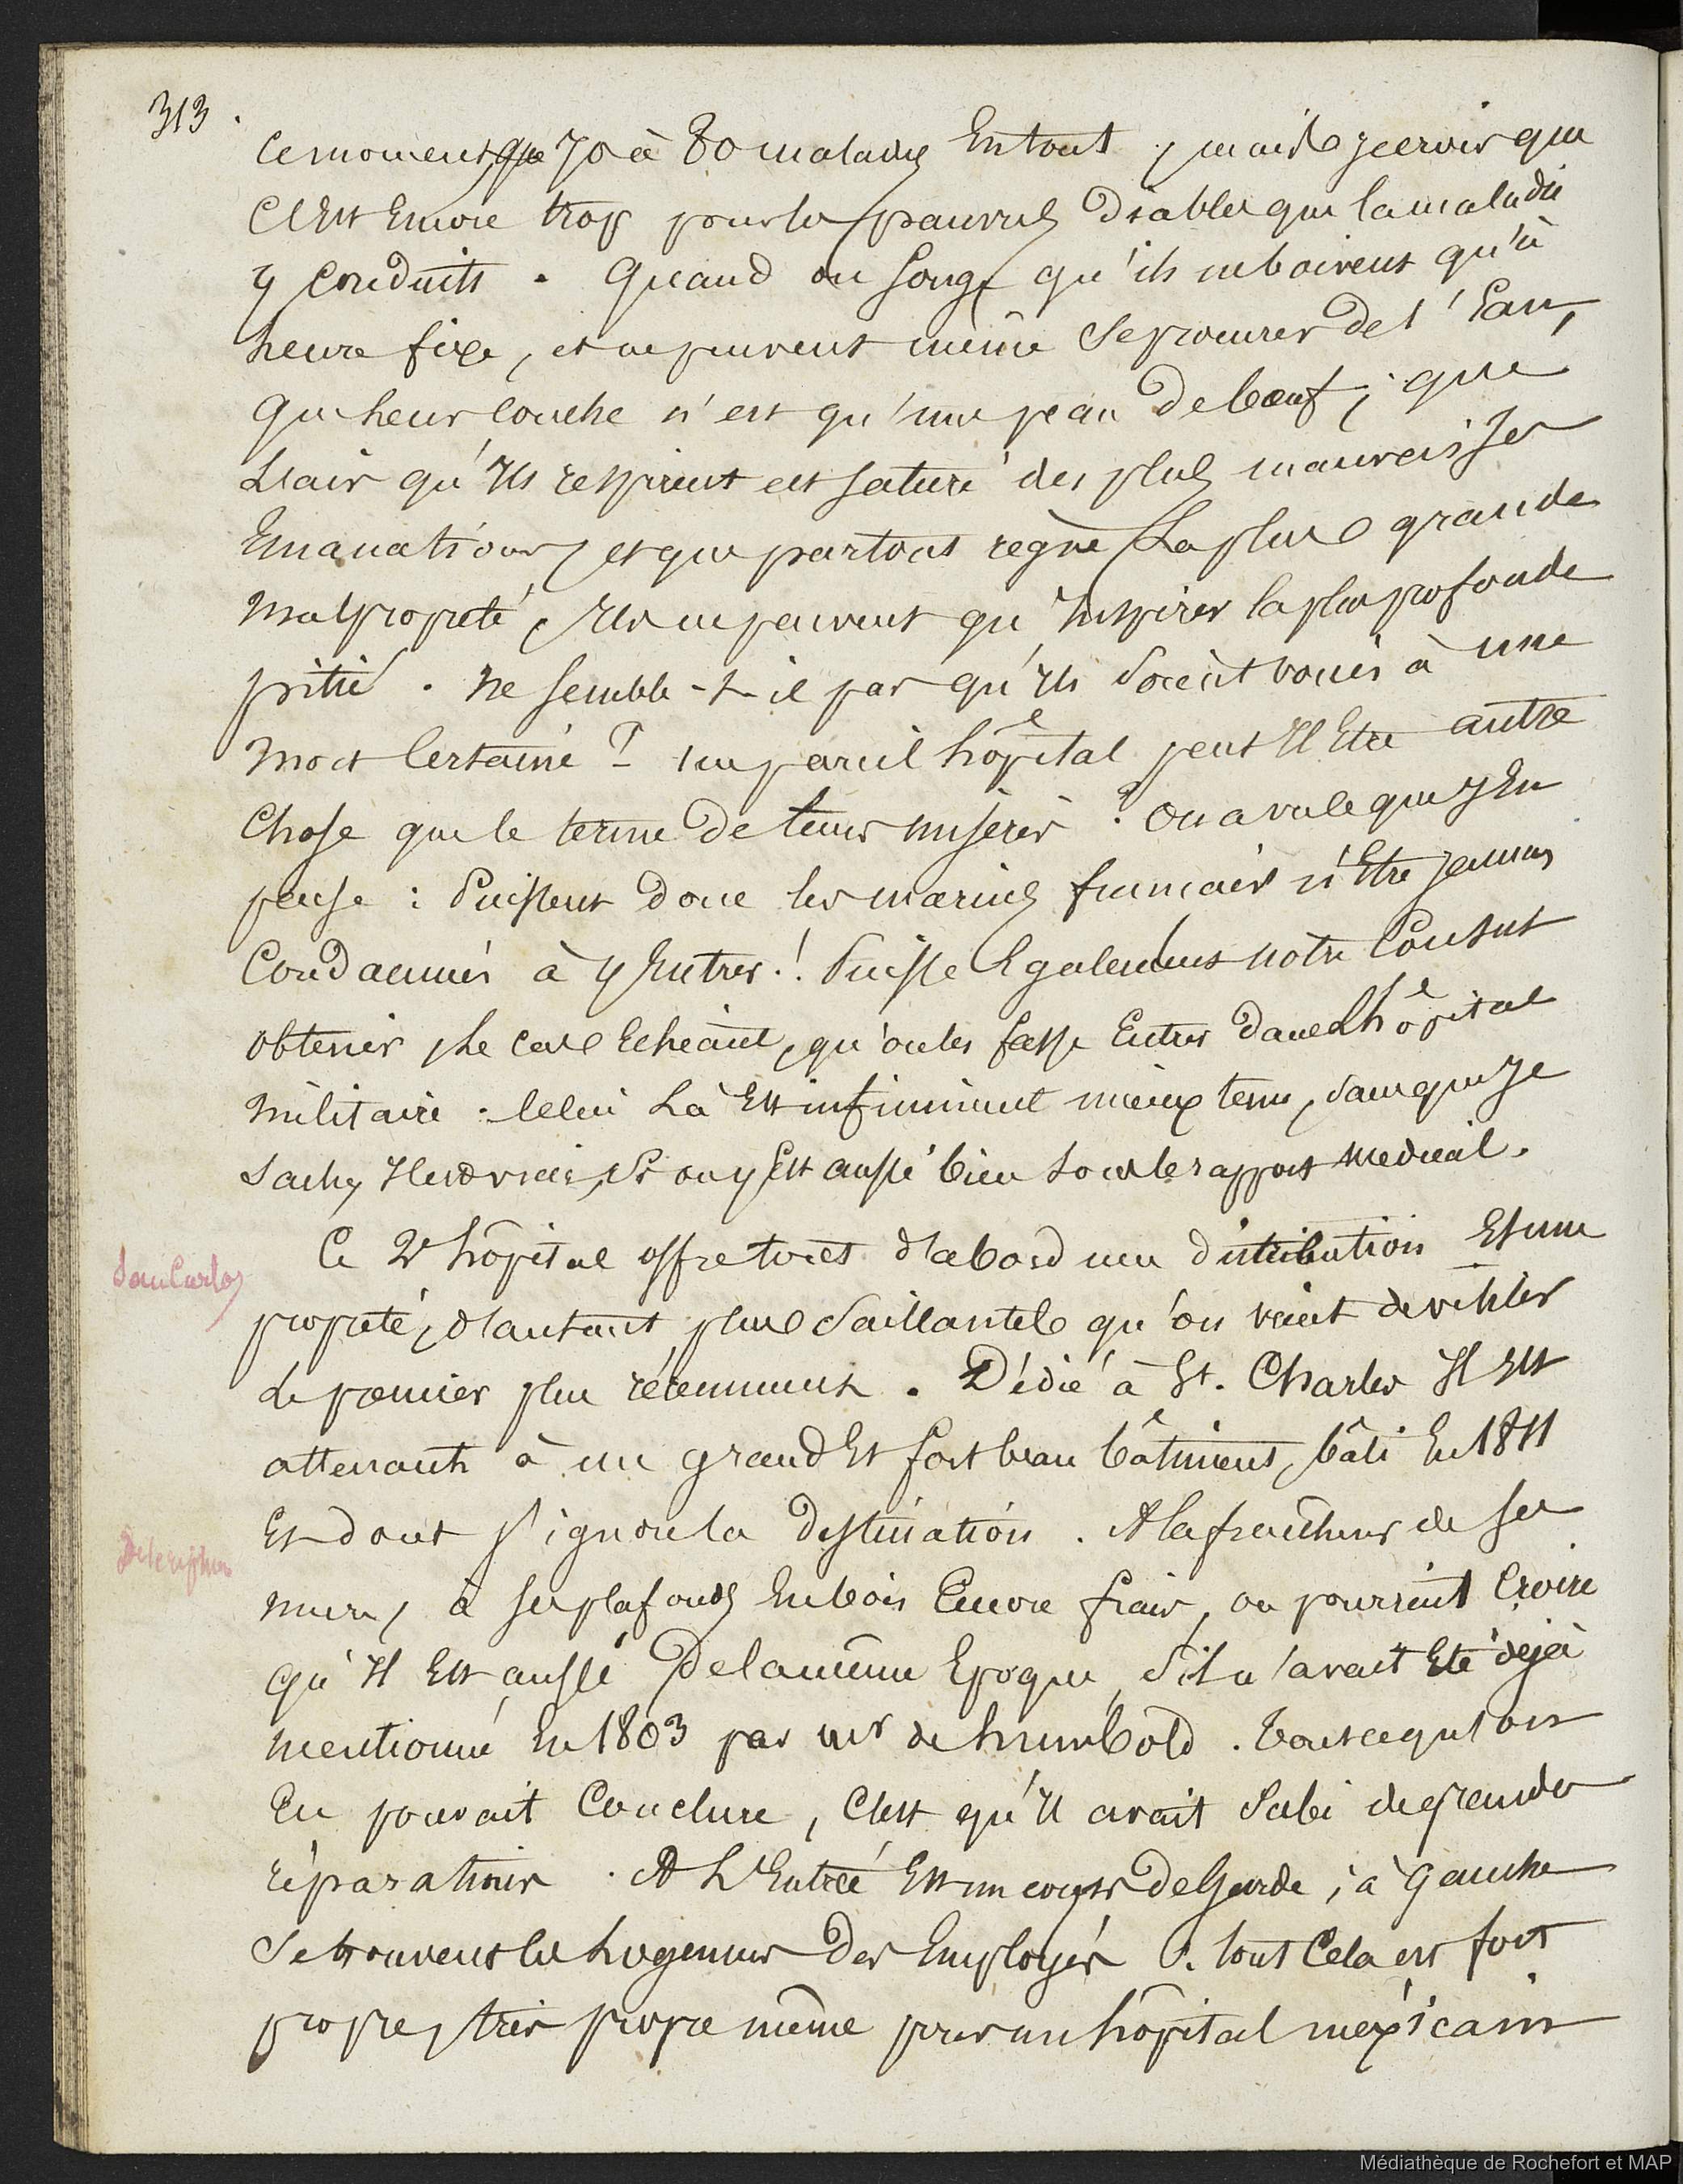 313.
Ce moment, que 70 à 80 malades En tout, mais je crois que
C'Est Encore trop pour les pauvres Diables que la maladie
y Conduits. Quand on songe qu'ils ne boivent qu'à
heure fixe, et ne peuvent même se procurer de l'Eau,
que leur Couche n'est qu'une peau de boeuf; que
L'air qu'ils respirent est saturé des plus mauvaisses
Emanations, et que partout règne La plus grande
malpropreté, Ils ne peuvent qu'Inspirer la plus profonde
pitié. ne semble-t-il pas qu'ils soient voués à une
mort Certaine? un pareil hôpital peut Il Etre autre
Chose que le terme de leurs misères? on a vu ce que j'En
pense: Puissent donc les marins français n'Etre jamais
Condamnés à y Entrer.! Puisse Egalement notre Consul
obtenir, Le cas Echéant, qu'on les fasse Entrer dans L'hôpital
militaire. Celui Là Est infiniment mieux tenu, sans que Je
Sache, Il est vrai, Si on y Est aussi bien sous le rapport medical.
San Carlos
Ce 2e hôpital offre tout d'abord une distribution Et une
propreté, d'autant plus saillante qu'on vient de visiter
Le premier plus récemment. Dédié à St. Charles Il Est
attenant à un grand Et fort beau bâtiment, bâti En 1811
Et dont j'ignore la destination. A la fraîcheur de ses
Description
murs, à ses plafonds En bois Encore frais, on pourrait Croire
qu'Il Est aussi De la même Epoque, s'il n'avait Eté déjà
mentionné En 1803 par mr de humbold. Tout ce qu'on
En pouvait Conclure, C'est qu'Il avait subi de grandes
réparations. A L'Entrée Est un corps de Garde; à gauche
Se trouvent les Logemens Des Employés. Tout Cela est fort
propre, très propre même pour un hôpital mexicain
Médiathèque de Rochefort et MAP